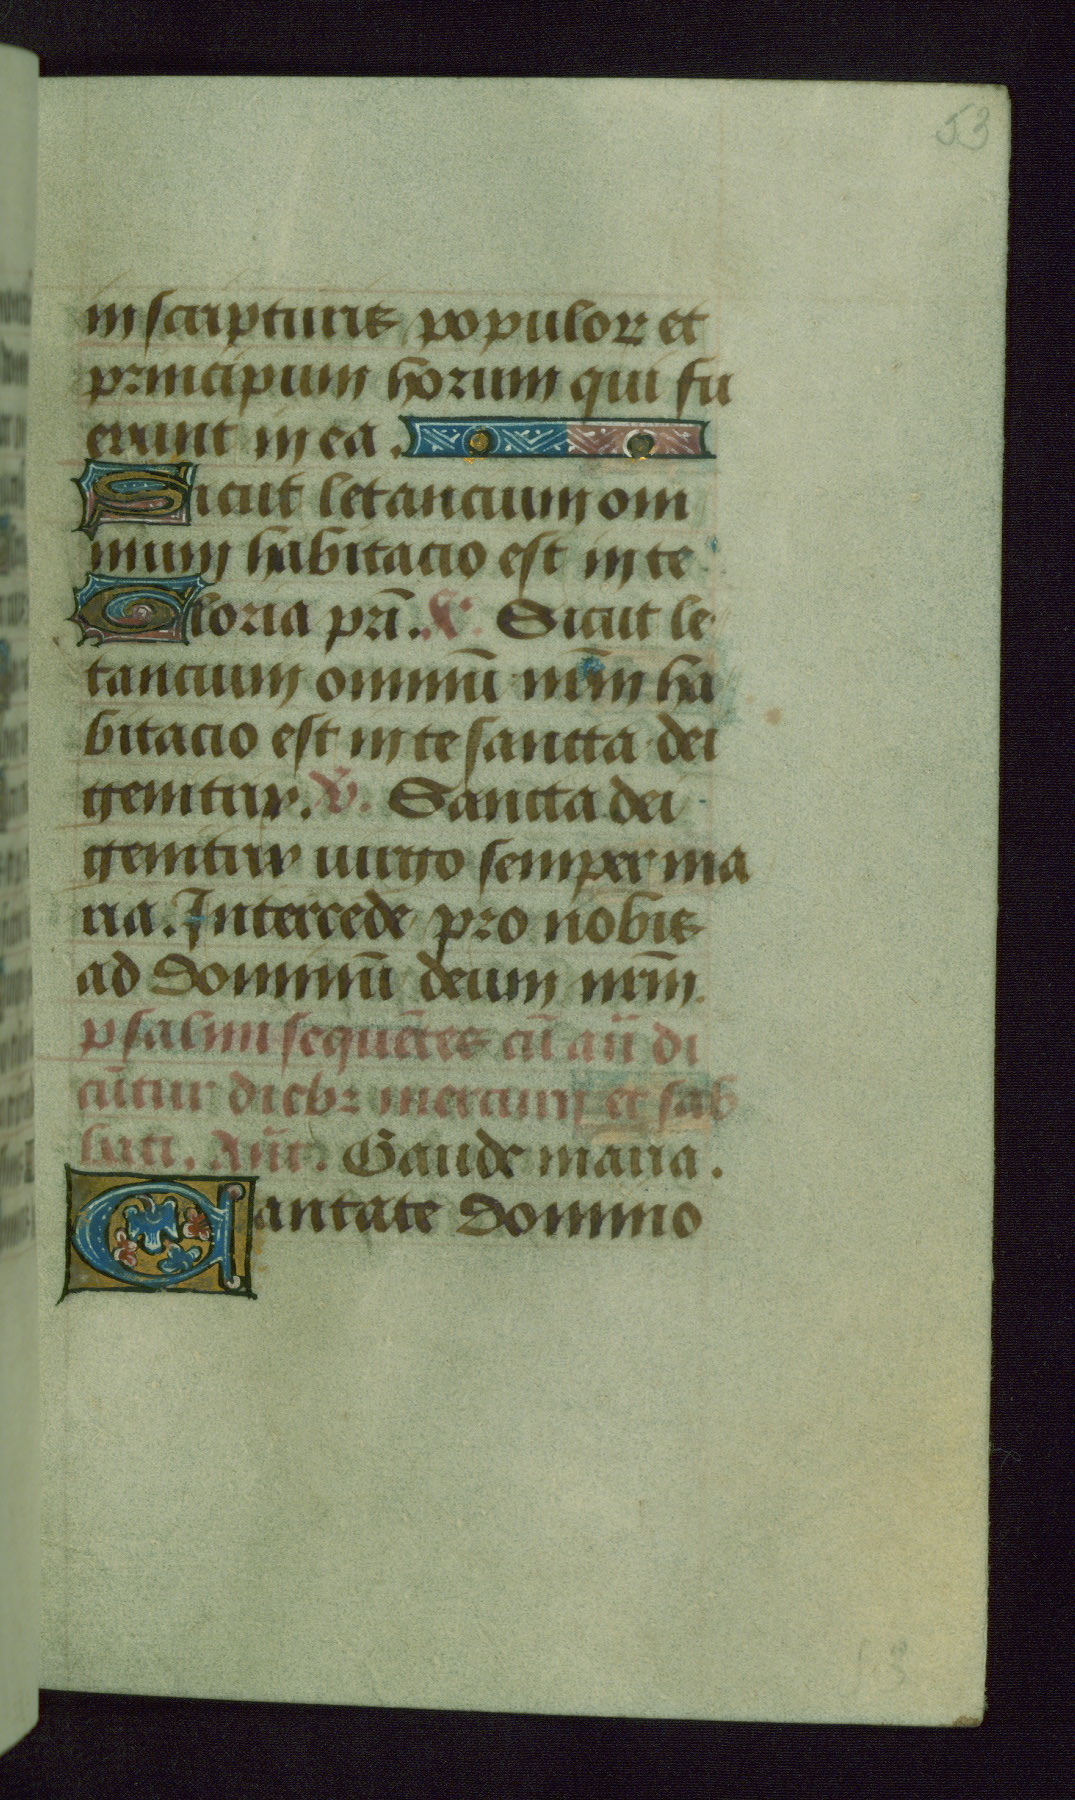 53
in scripturis populoꝝ et
principum horum qui fu
erunt in ea.
Sicut letancium om
nium habitacio est in te
Gloria pr̄i. Sicut le
tancium omniū nr̄m ha
bitacio est in te sancta dei
genitrix. V̄. Sancta dei
genitrix uirgo semper ma
ria. Intercede pro nobis
ad dominū deum nr̄m.
psalmi sequētes cū an̄ di
cūtur diebꝫ mercurii et sab
bati. An̄t. Gaude maria.
Cantate domino
53